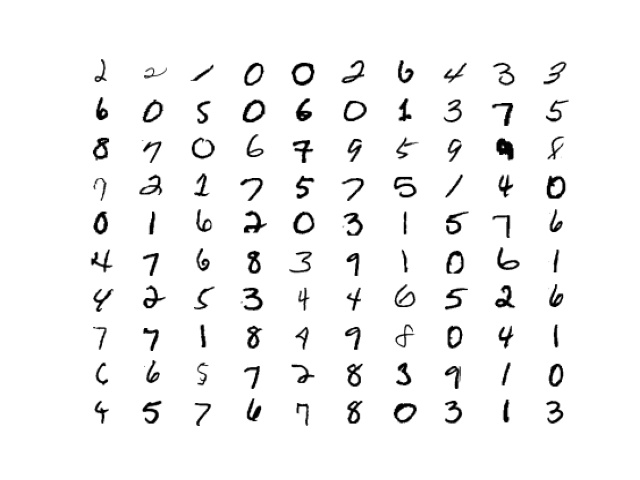 2 2 1 0 0 2 6 4 3 3
6 0 5 0 6 0 1 3 7 5
8 7 0 6 7 9 5 9 9 8
7 2 1 7 5 7 5 1 4 0
0 1 6 2 0 3 1 5 7 6
4 7 6 8 3 9 1 0 6 1
4 2 5 3 4 4 6 5 2 6
7 7 1 8 4 9 8 0 4 1
6 6 5 7 2 8 3 9 1 0
4 5 7 6 7 8 0 3 1 3